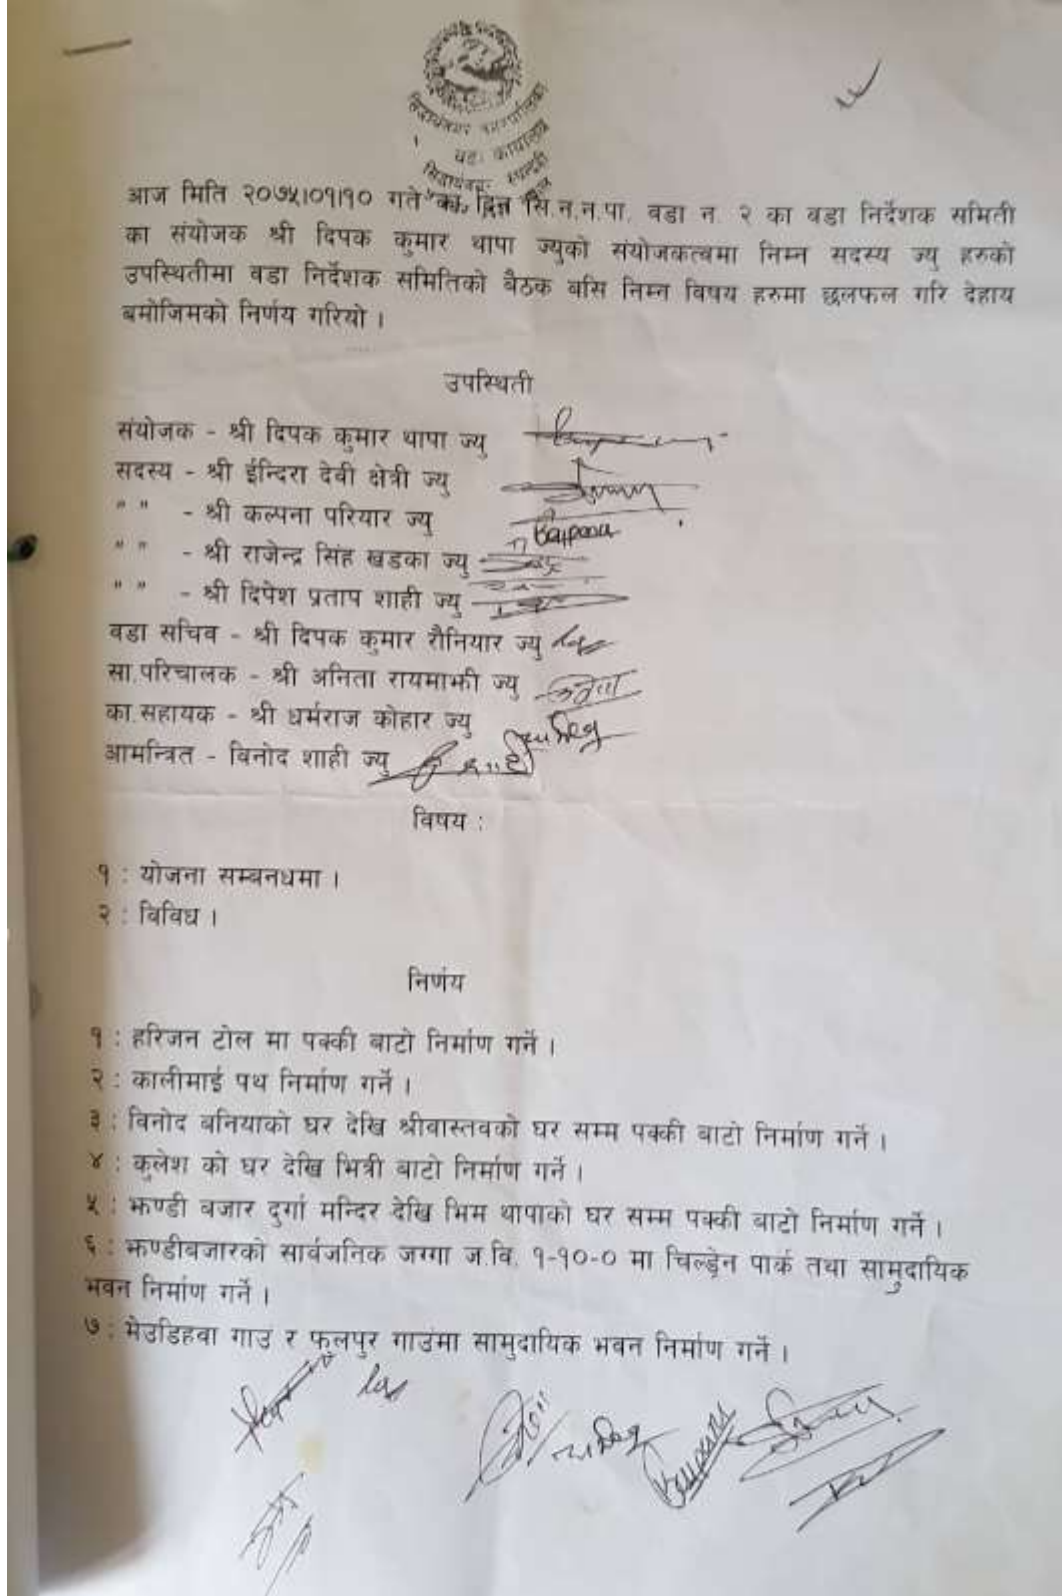 सिद्धार्थनगर नगरपालिका
आज मिति २०७५।०१।१० गते का दिन सि.न.न.पा. वडा न. २ का वडा निर्देशक समिती
का संयोजक श्री दिपक कुमार थापा ज्युको संयोजकत्वमा निम्न सदस्य ज्यु हरुको
उपस्थितीमा वडा निर्देशक समितिको बैठक बसि निम्न विषय हरुमा छलफल गरि देहाय
बमोजिमको निर्णय गरियो ।
उपस्थिती
संयोजक - श्री दिपक कुमार थापा ज्यु
सदस्य - श्री ईन्दिरा देवी क्षेत्री ज्यु
" " - श्री कल्पना परियार ज्यु
" " - श्री राजेन्द्र सिंह खडका ज्यु
" " - श्री दिपेश प्रताप शाही ज्यु
वडा सचिव - श्री दिपक कुमार रौनियार ज्यु
सा.परिचालक - श्री अनिता रायमाझी ज्यु
का.सहायक - श्री धर्मराज कोहार ज्यु
आमन्त्रित - विनोद शाही ज्यु
विषय :
१ : योजना सम्बनधमा ।
२ : विविध ।
निर्णय
१ : हरिजन टोल मा पक्की बाटो निर्माण गर्ने ।
२ : कालीमाई पथ निर्माण गर्ने ।
३ : विनोद बनियाको घर देखि श्रीवास्तवको घर सम्म पक्की बाटो निर्माण गर्ने ।
४ : कुलेश को घर देखि भित्री बाटो निर्माण गर्ने ।
५ : झण्डी बजार दुर्गा मन्दिर देखि भिम थापाको घर सम्म पक्की बाटो निर्माण गर्ने ।
६ : झण्डीबजारको सार्वजनिक जग्गा ज.वि. १-१०-० मा चिल्ड्रेन पार्क तथा सामुदायिक
भवन निर्माण गर्ने ।
७ : भेउडिहवा गाउं र फूलपुर गाउंमा सामुदायिक भवन निर्माण गर्ने ।